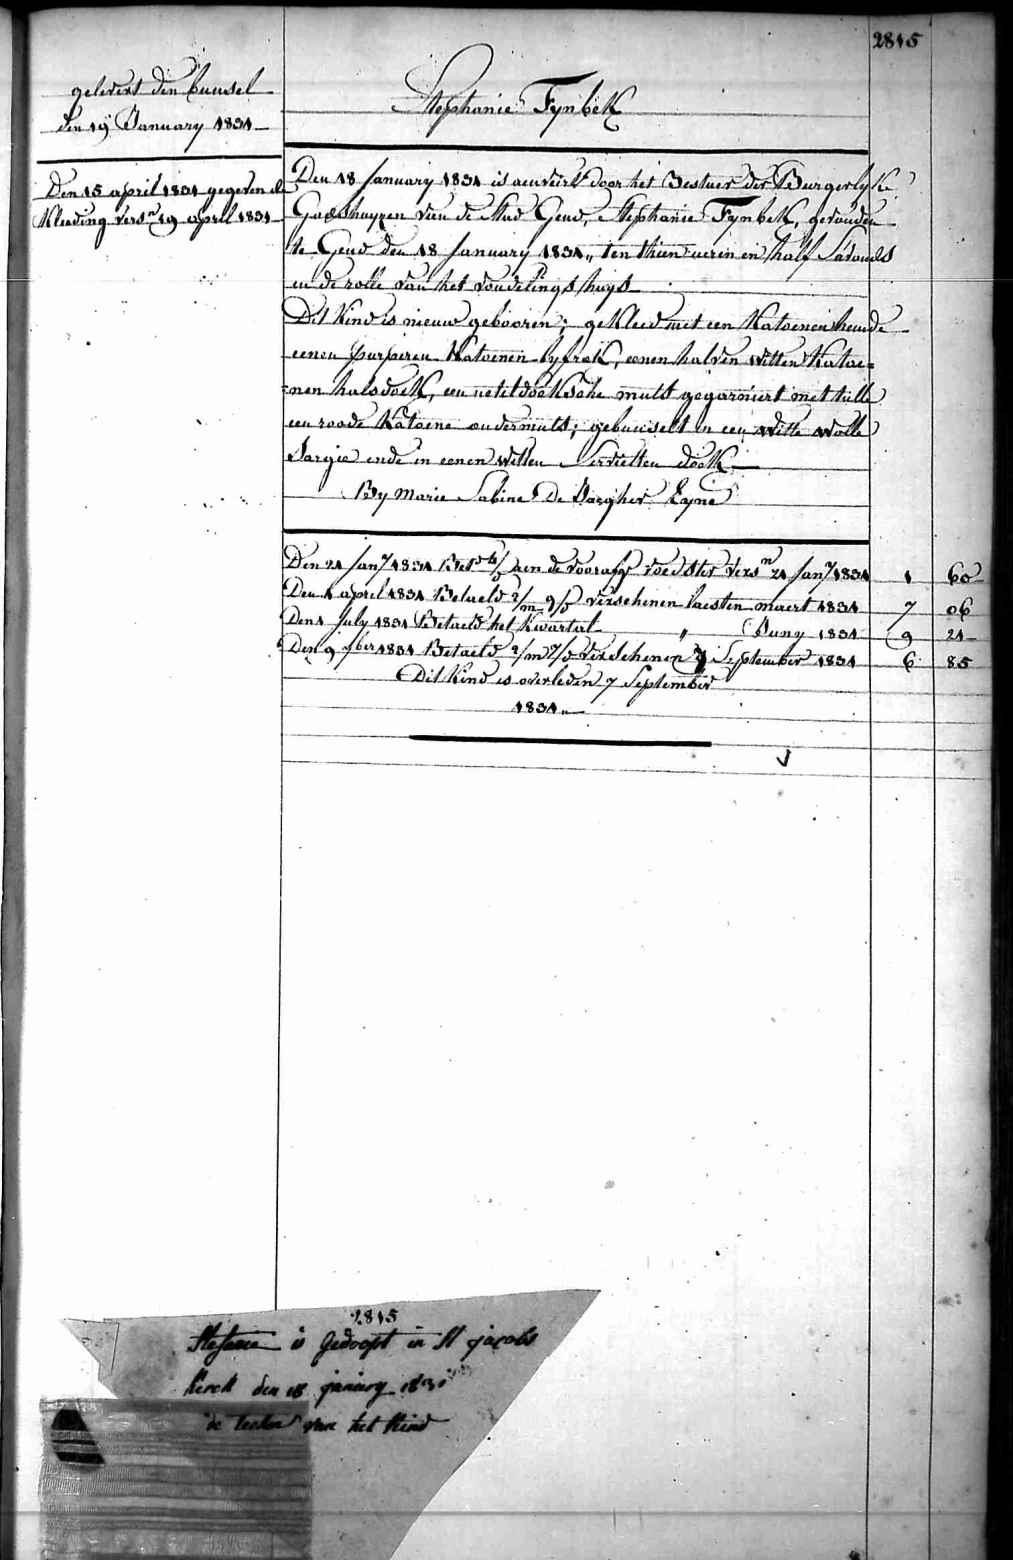 2815
gelevert den buussel
den 19 January 1831
Stephanie Fynbek
Den 15 april 1831 gegeven de
Kleeding versn 19 april 1831
Den 18 January 1831 is aenveird door het Bestuer der Burgerlyke
Godshuyzen van de Stad Gend, Stephanie Fynbek, gevonden
te Gend den 18 January 1831„ ten thien uren en half s'avonds
in de rolle van het vondelingshuys
Dit kind is nieuw gebooren; gekleed met een katoenen hemde
eenen purperen katoenen lyfrok, eenen halven witten katoe=
=nen halsdoek, een neteldoeksche muts gegarniert met tulle
een roode katoene ondermuts; gebuuselt in een witte wolle
sargie ende in eenen witten servietten doek
By Marie Sabine De Vaegher Eyne
Den 21 Jany 1831 aen de voorafge voedster versn 21 Jany 1831 1 60
Den 1 april 1831 Betaeld 2/m 9/d verschenen laesten maert 1831 7 06
Den 1 July 1831 Betaeld het kwartal „ Juny 1831 9 21
Den 9 1831 Betaeld 2/m 7/d verschenen 7 September 1831 6 85
Dit kind is overleden 7 September
1831„
2815
Stefanie is gedoopt in St jacobs
kerck den 18 january 1831
de teeken van het kind